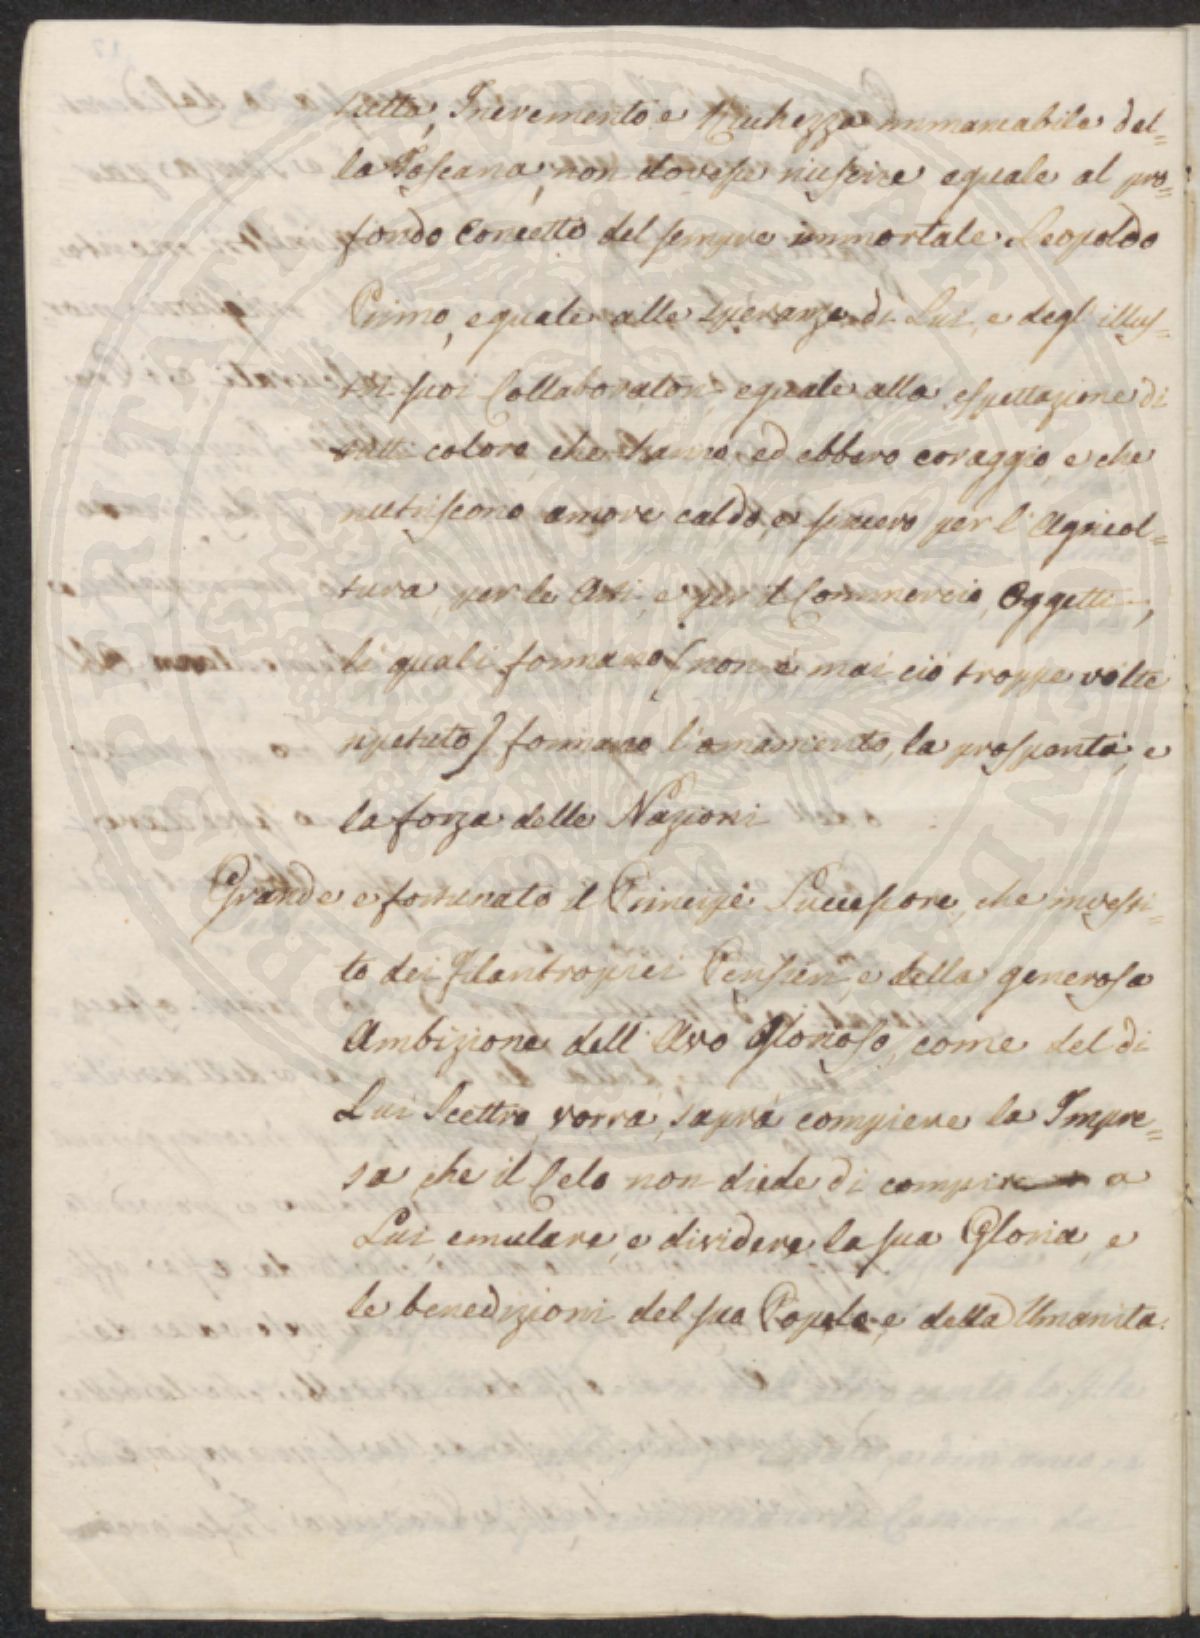 tutto, Incremento e Ricchezza immancabile del=
la Toscana, non dovesse riuscire eguale al pro=
fondo concetto del sempre immortale Leopoldo
Primo, eguale alle speranze di Lui, e degl' illus=
tri suoi Collaboratori, eguale alla espettazione di
tutti coloro, che hanno, ed ebbero coraggio, e che
nutriscono amore caldo, e sincero per l'Agricol=
tura, per le Arti, e per il Commercio, Oggetti,
li quali formano (non è mai ciò troppe volte
ripetuto) formano l'ornamento, la prosperità, e
la forza delle Nazioni
Grande e fortunato il Principe Successore, che investi=
to dei Filantropici Pensieri, e della generosa
Ambizione dell'Avo Glorioso, come del di
Lui Scettro, vorrà, saprà compiere la Impre=
sa, che il Celo non diede di compire a
Lui, emulare, e dividere la sua Gloria, e
le benedizioni del suo Popolo, e della Umanita.
PROSPERITATI PUBLICAE AUGENDAE